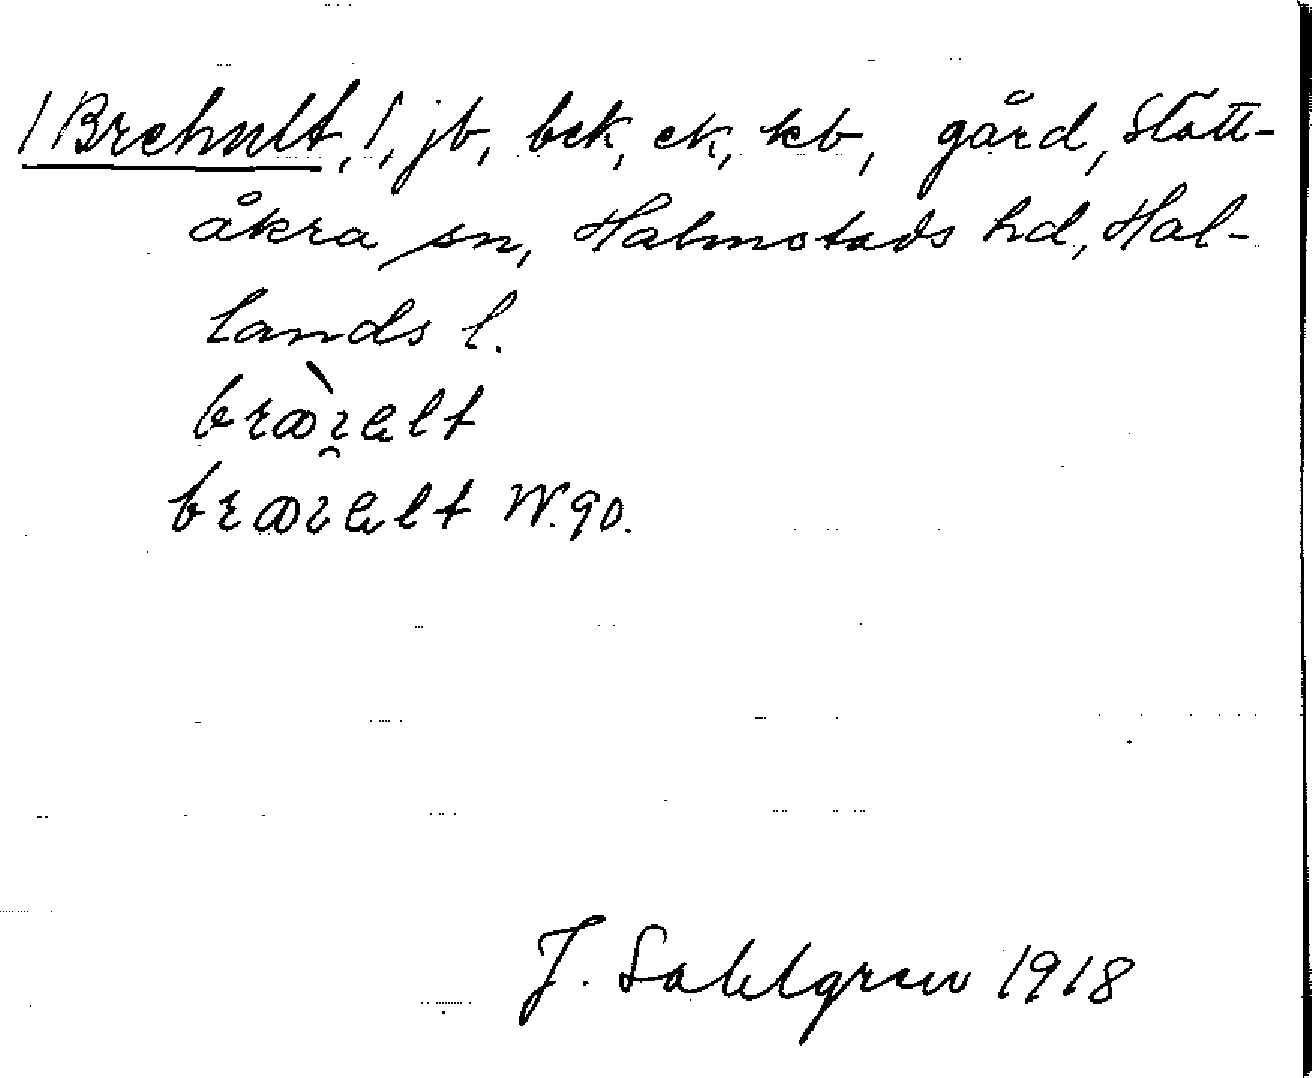 1 Brehult, !, jb, bck, ck, kb, gård, Slätt-
åkra sn, Halmstads hd, Hal-
lands l.
W. 90.
J. Sahlgren 1918